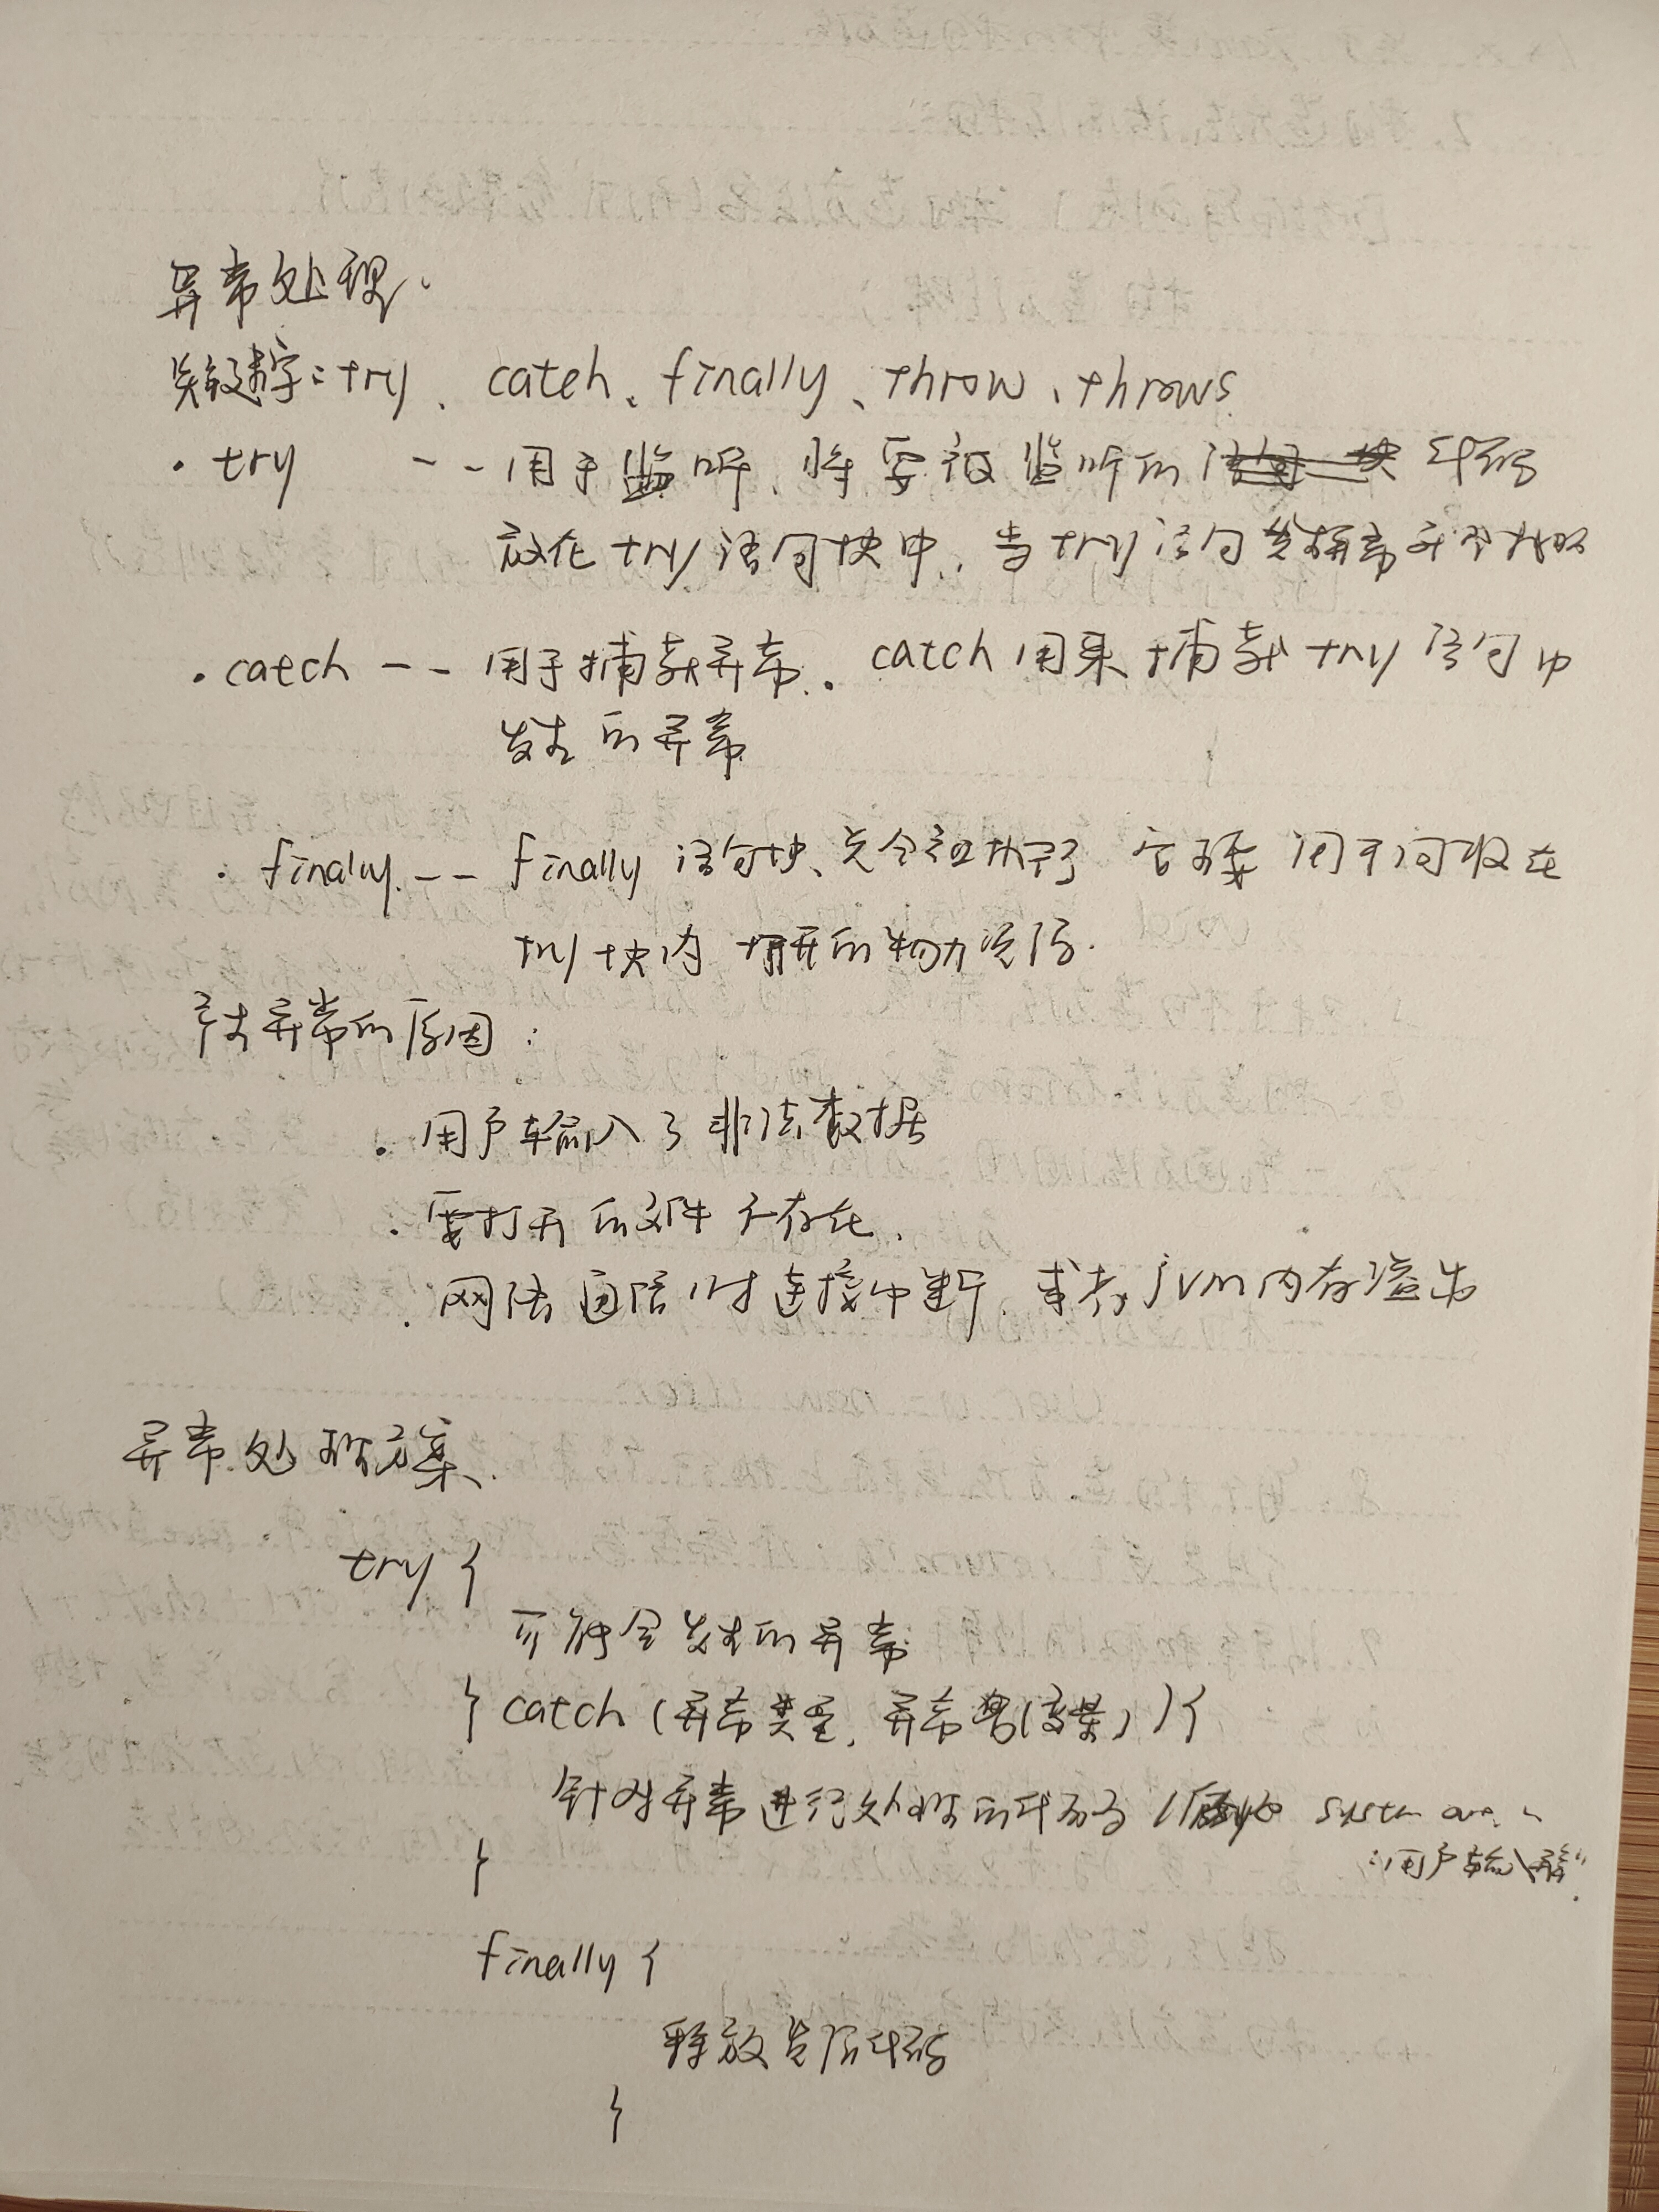 异常处理.
关键字:try、catch、finally、throw、throws
· try -- 用于监听、将要被监听的代码
放在try语句块中,当try语句发生异常
· catch -- 用于捕获异常. catch用来捕获try语句中
发生的异常
· finaly. -- finally语句块、总会被执行 它主要用于回收在
try块内打开的物力资源.
产生异常的原因:
· 用户输入了非法数据
· 要打开的文件不存在.
· 网络通信时连接中断,或者jvm内存溢出
异常处理方案.
try {
可能会发生的异常
} catch (异常类型, 异常名(变量) ) {
针对异常进行处理的代码 // system out.
"用户输入异常".
}
finally {
释放资源代码
}